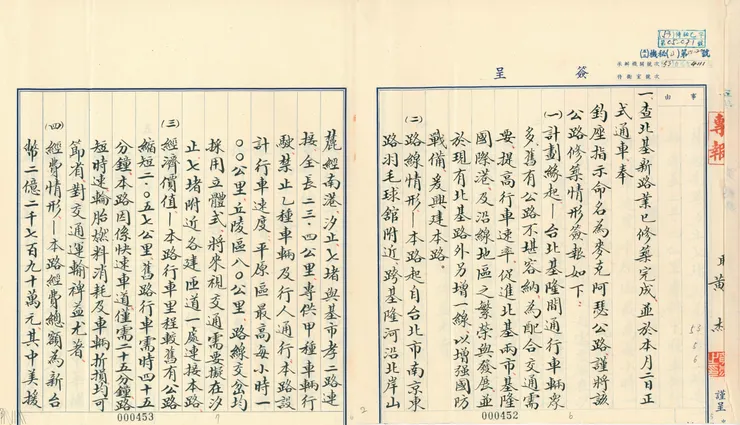 專報
簽呈
事由
職黃杰
謹呈
一、查北基新路業已修築完成並於本月二日正
式通車奉
鈞座指示命名為麥克阿瑟公路謹將該
公路修築情形簽報如下：
(一)計劃緣起—台北基隆間通行車輛眾
多舊有公路不堪容納為配合交通需
要、提高行車速率促進北基兩市基隆
國際港及沿線地區之繁榮與發展並
於現有北基路外另增一線以增強國防
戰備爰興建本路。
(二)路線情形—本路起自台北市南京東
路羽毛球館附近跨基隆河沿北岸山
000452
麓經南港、汐止、七堵與基市孝二路連
接全長二三·四公里專供甲種車輛行
駛禁止乙種車輛及行人通行本路設
計行車速度平原區最高每小時一
〇〇公里、丘陵區八〇公里、路線交岔均
採用立體式、將來視交通需要擬在汐
止七堵附近各建匝道一處連接本路
(三)經濟價值—本路行車里程較舊有公路
縮短二·〇五七公里舊路行車需時四十五
分鐘本路因係快速車道僅需二十五分鐘路
短時速輪胎燃料消耗及車輛折損均可
節省對交通運輸裨益尤著
(四)經費情形—本路經費總額為新台
幣二億二千七百九十萬元其中美援
000453